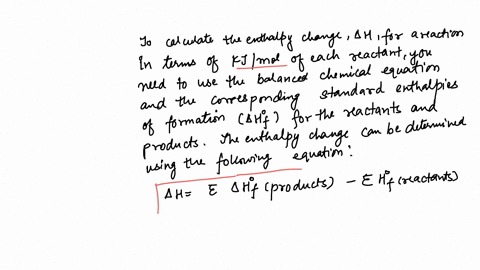 To calculate the enthalpy change, ΔH, for a reaction
In terms of KJ/mol of each reactant, you
need to use the balanced chemical equation
and the corresponding standard enthalpies
of formation (ΔH°f) for the reactants and
products. The enthalpy change can be determined
using the following equation:
ΔH = Σ ΔH°f (products) - Σ H°f (reactants)